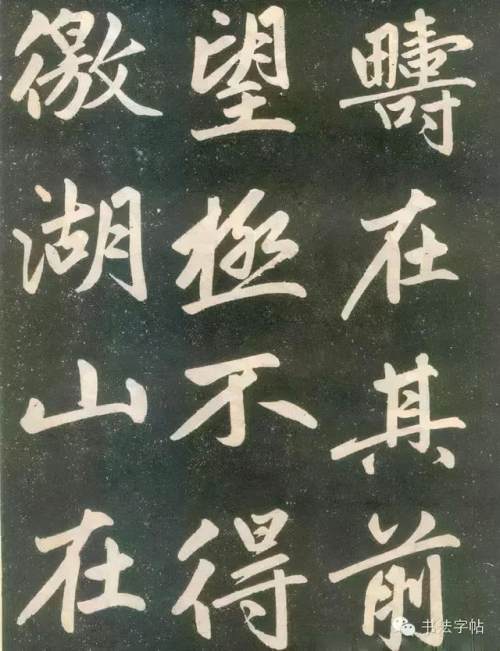 疇在其前
望極不得
徼湖山在
书法字帖